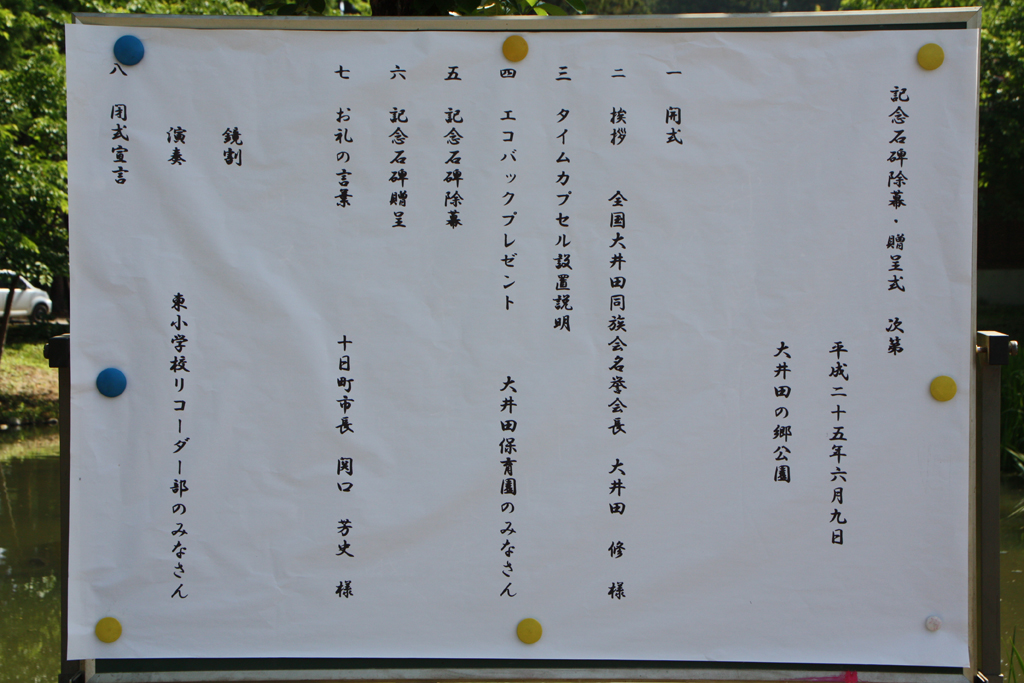 記念石碑除幕・贈呈式　次第
平成二十五年六月九日
大井田の郷公園
一　開式
二　挨拶　全国大井田同族会名誉会長　大井田　修　様
三　タイムカプセル設置説明
四　エコバックプレゼント　大井田保育園のみなさん
五　記念石碑除幕
六　記念石碑贈呈
七　お礼の言葉　十日町市長　関口　芳史　様
鏡割
演奏　東小学校リコーダー部のみなさん
八　閉式宣言